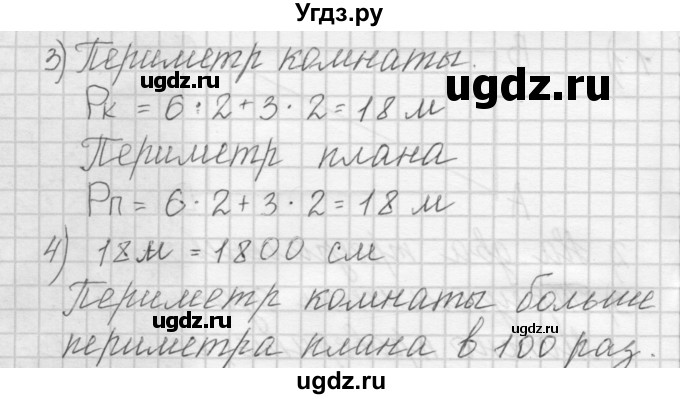 Угдз.ру
3) Периметр комнаты.
Pк = 6 · 2 + 3 · 2 = 18 м
Периметр плана
Pп = 6 · 2 + 3 · 2 = 18 м
4) 18м = 1800 см
Периметр комнаты больше
периметра плана в 100 раз.
ugdz.ru
ugdz.ru
ugdz.ru
ugdz.ru
ugdz.ru